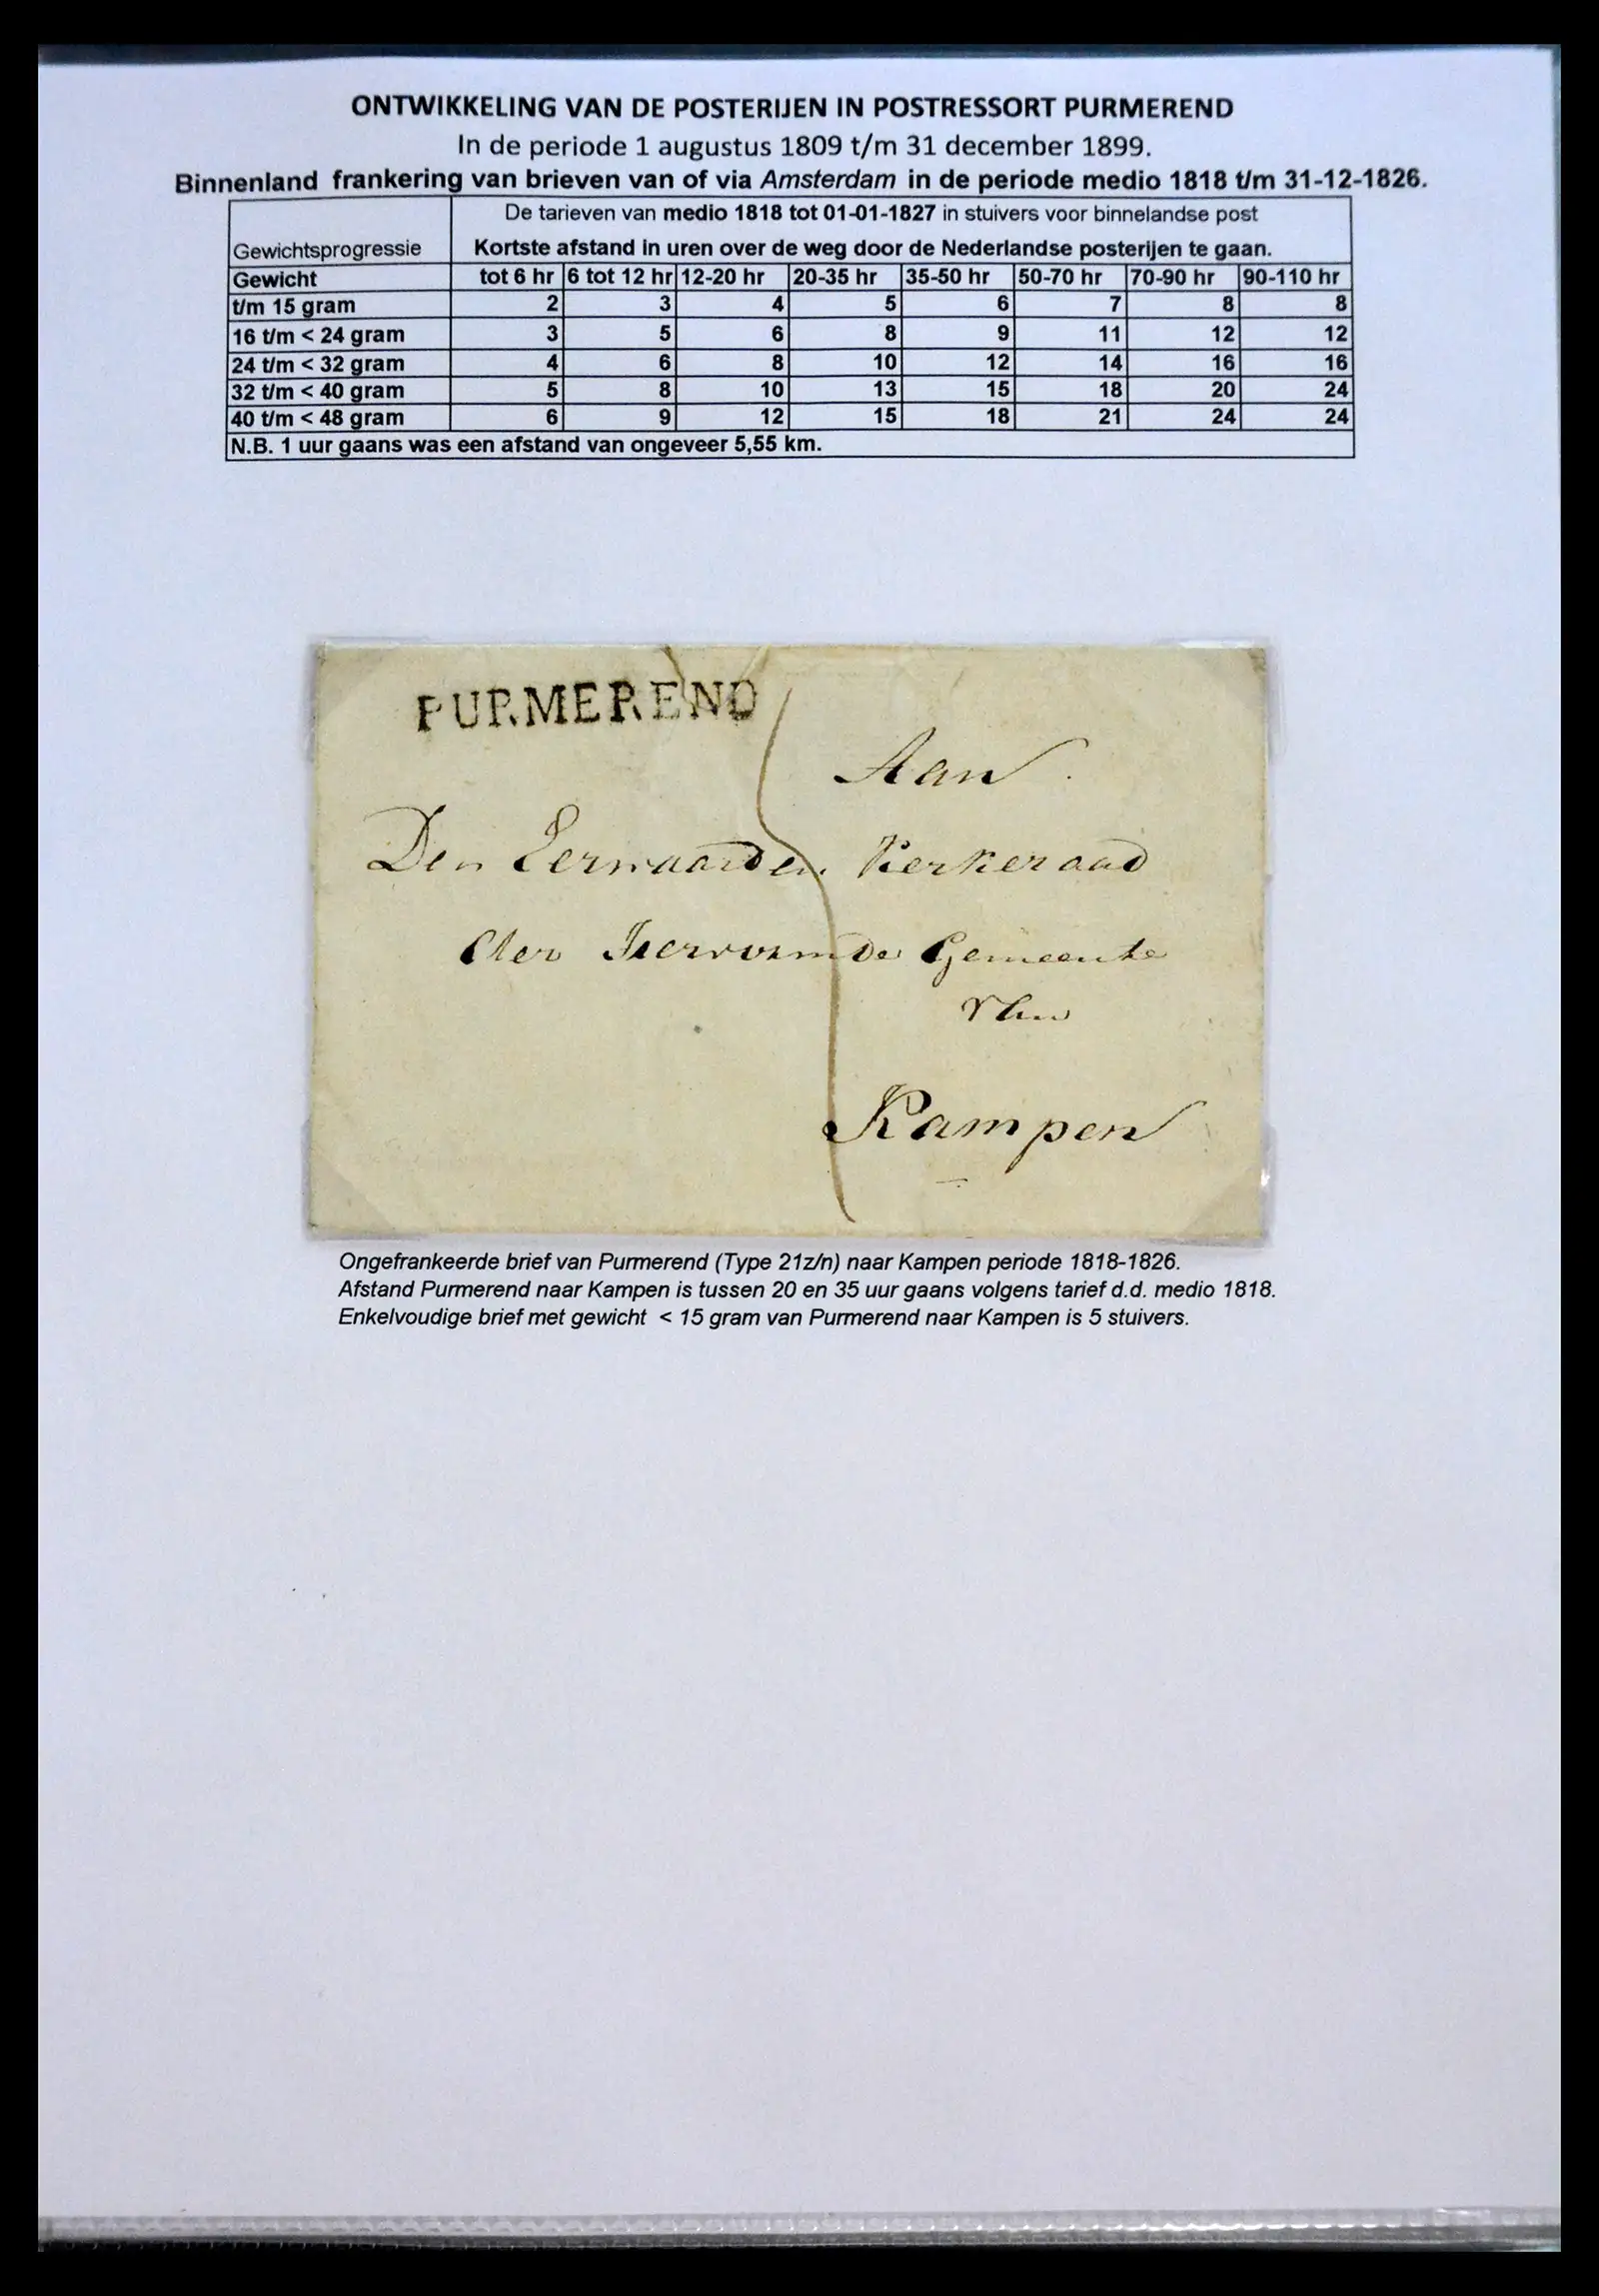 ONTWIKKELING VAN DE POSTERIJEN IN POSTRESSORT PURMEREND
In de periode 1 augustus 1809 t/m 31 december 1899.
Binnenland frankering van brieven van of via Amsterdam in de periode medio 1818 t/m 31-12-1826.
De tarieven van medio 1818 tot 01-01-1827 in stuivers voor binnelandse post
Gewichtsprogressie Kortste afstand in uren over de weg door de Nederlandse posterijen te gaan.
Gewicht tot 6 hr 6 tot 12 hr 12-20 hr 20-35 hr 35-50 hr 50-70 hr 70-90 hr 90-110 hr
t/m 15 gram 2 3 4 5 6 7 8 8
16 t/m < 24 gram 3 5 6 8 9 11 12 12
24 t/m < 32 gram 4 6 8 10 12 14 16 16
32 t/m < 40 gram 5 8 10 13 15 18 20 24
40 t/m < 48 gram 6 9 12 15 18 21 24 24
N.B. 1 uur gaans was een afstand van ongeveer 5,55 km.
PURMEREND
Aan
Den Eerwaarden Kerkeraad
der Hervormde Gemeente
Kampen
Ongefrankeerde brief van Purmerend (Type 21z/n) naar Kampen periode 1818-1826.
Afstand Purmerend naar Kampen is tussen 20 en 35 uur gaans volgens tarief d.d. medio 1818.
Enkelvoudige brief met gewicht < 15 gram van Purmerend naar Kampen is 5 stuivers.